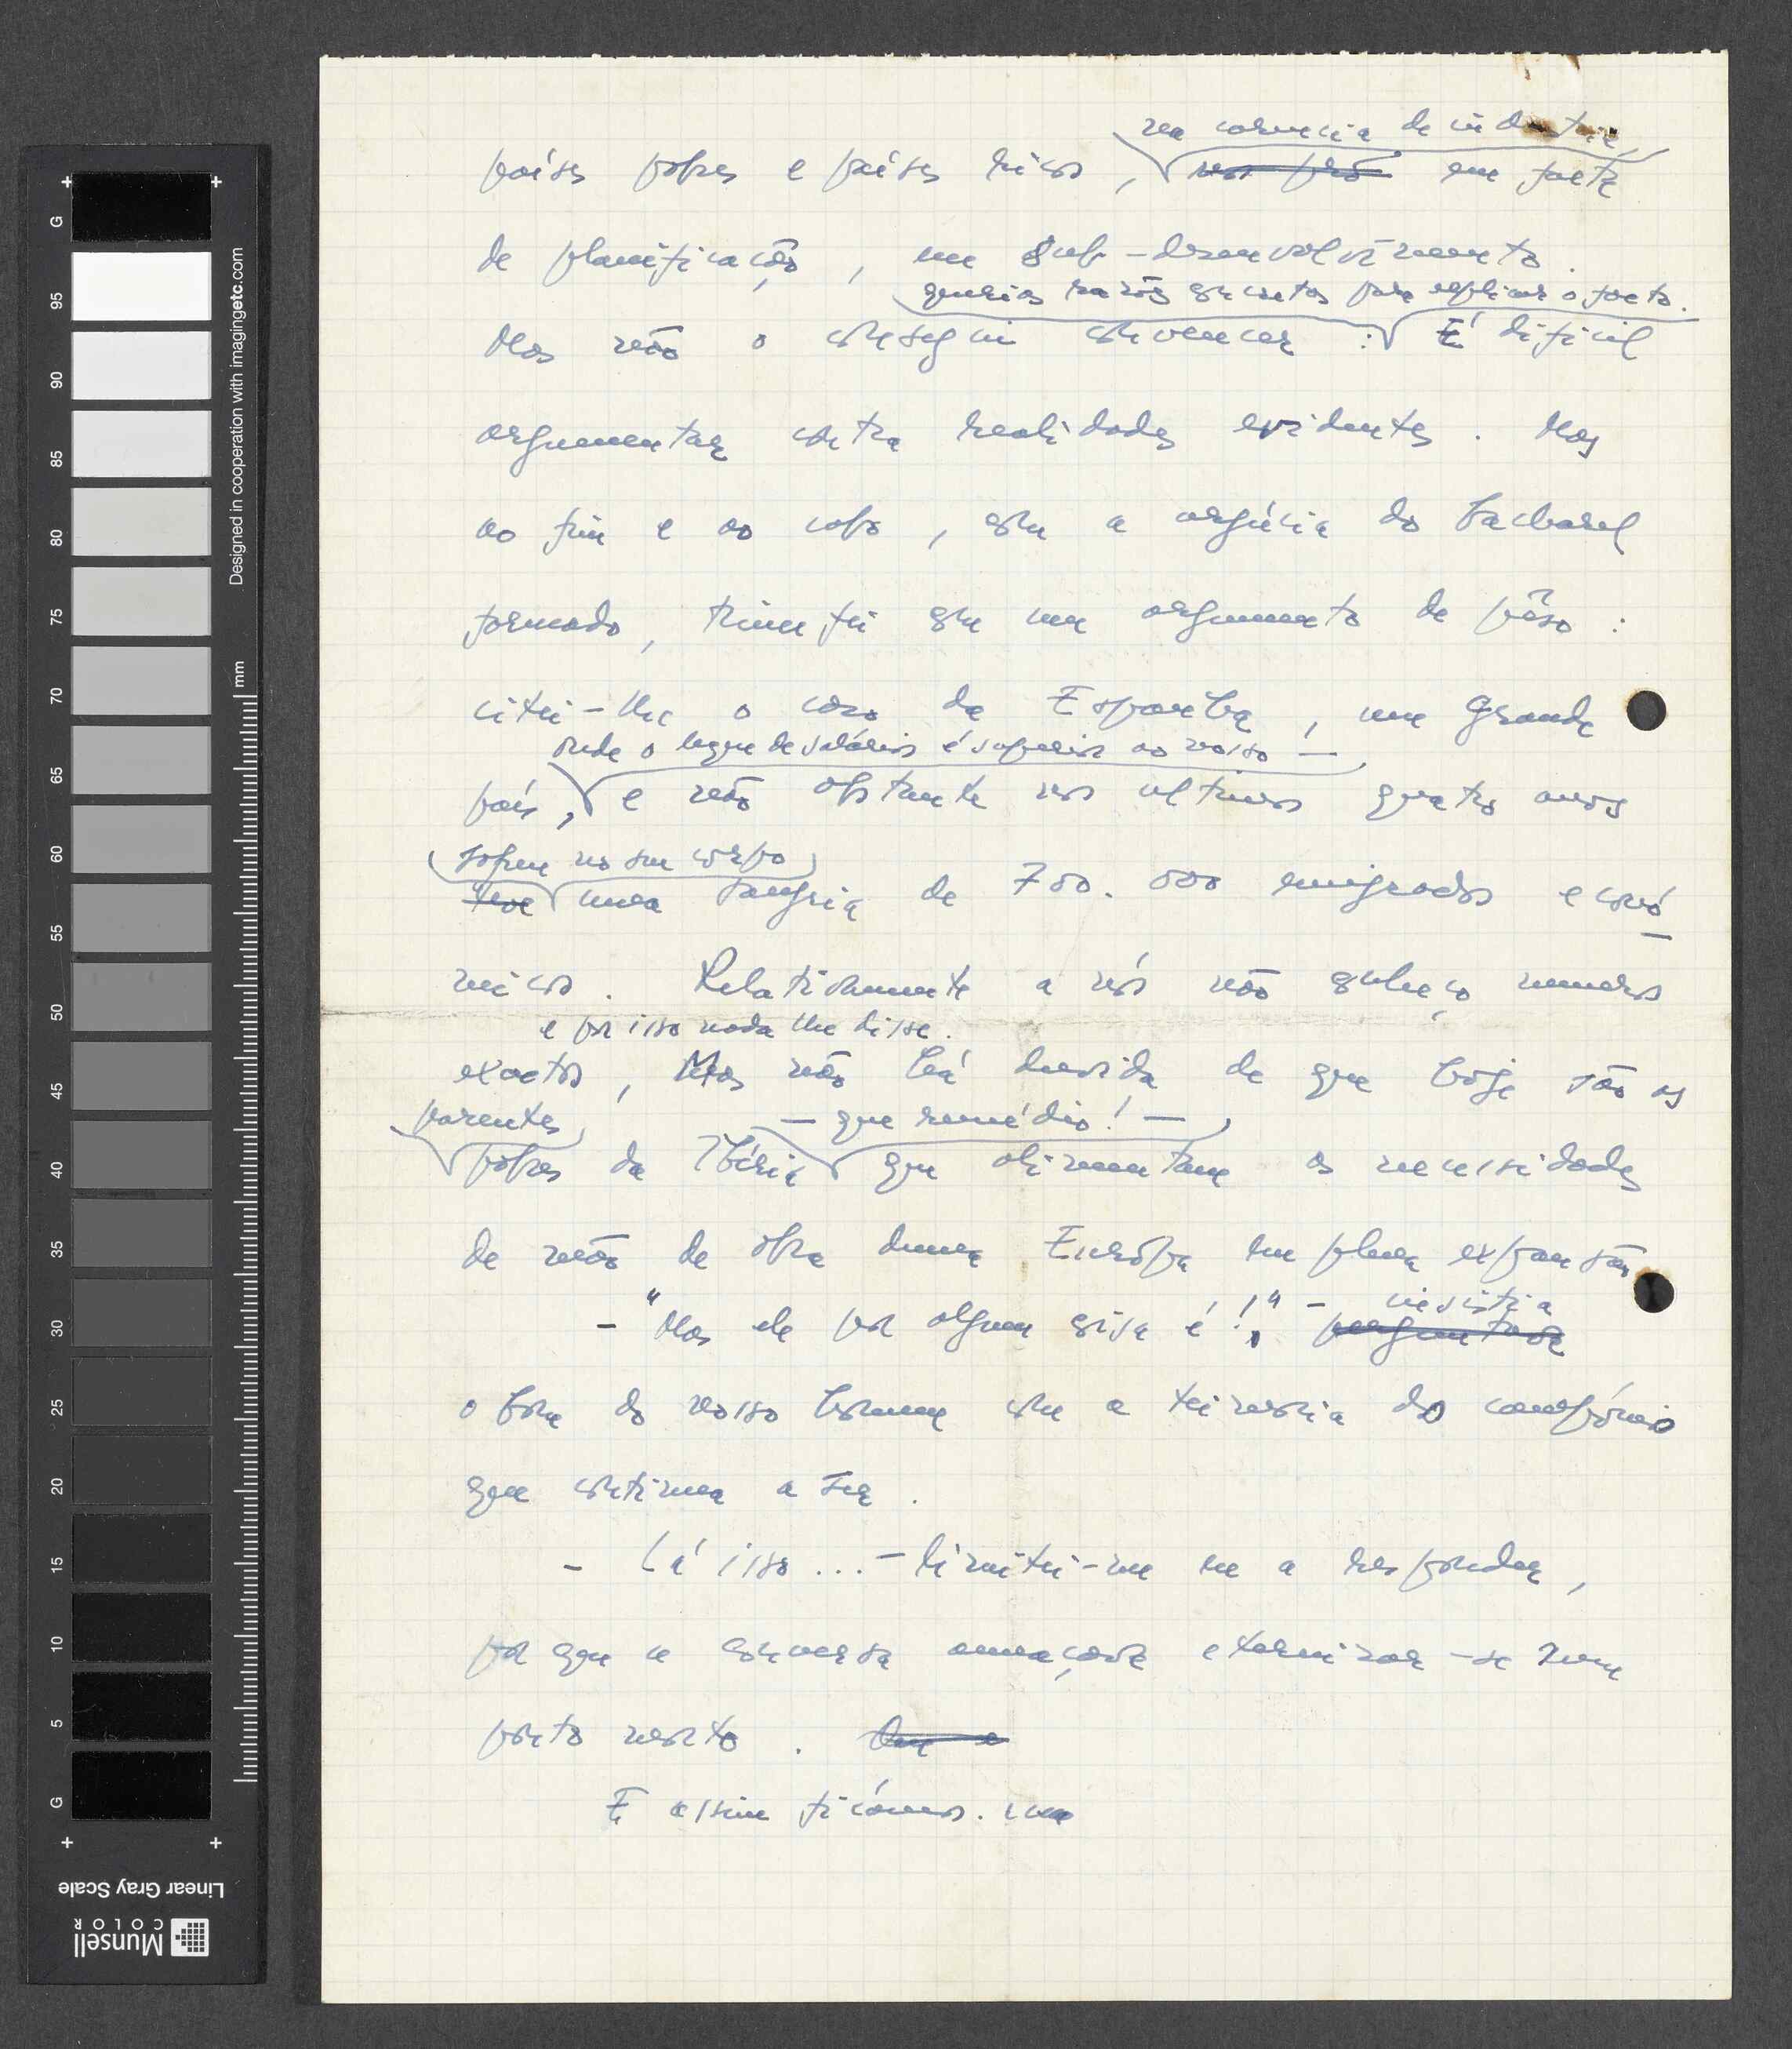 na carencia de industria,
países pobres e países ricos, em falta
de planificação, em sub-desenvolvimento.
queria razões concretas para explicar o facto.
Mas não o consegui convencer: É dificil
argumentar contra realidades evidentes. Mas
ao fim e ao cabo, com a argúcia do bacharel
formado, rematei com um argumento de pêso:
citei-lhe o caso da Espanha, um grande
onde o leque de salários é superior ao nosso —
país, e não obstante nos ultimos quatro anos
sofreu no seu corpo
teve uma sangria de 700.000 emigrados econó-
micos. Relativamente a nós não conheço numeros
e por isso nada lhe disse.
exactos, Mas não há duvida de que hoje são os
parentes — que remédio! —
pobres da Ibéria que alimentam as necessidades
de mão de obra duma Európa em plena expansão
- "Mas ele por alguma coisa é!," - insistia
perguntava
o bom do nosso homem com a teimosia do campónio
que continua a ser.
- Lá isso... - limitei-me eu a responder,
por que a conversa ameaçava eternizar-se num
ponto morto.
E assim ficámos.
Designed in cooperation with imagingetc.com
mm
G 95 90 85 80 75 70 65 60 55 50 45 40 35 30 25 20 15 10 5 G
Linear Gray Scale
Munsell
COLOR